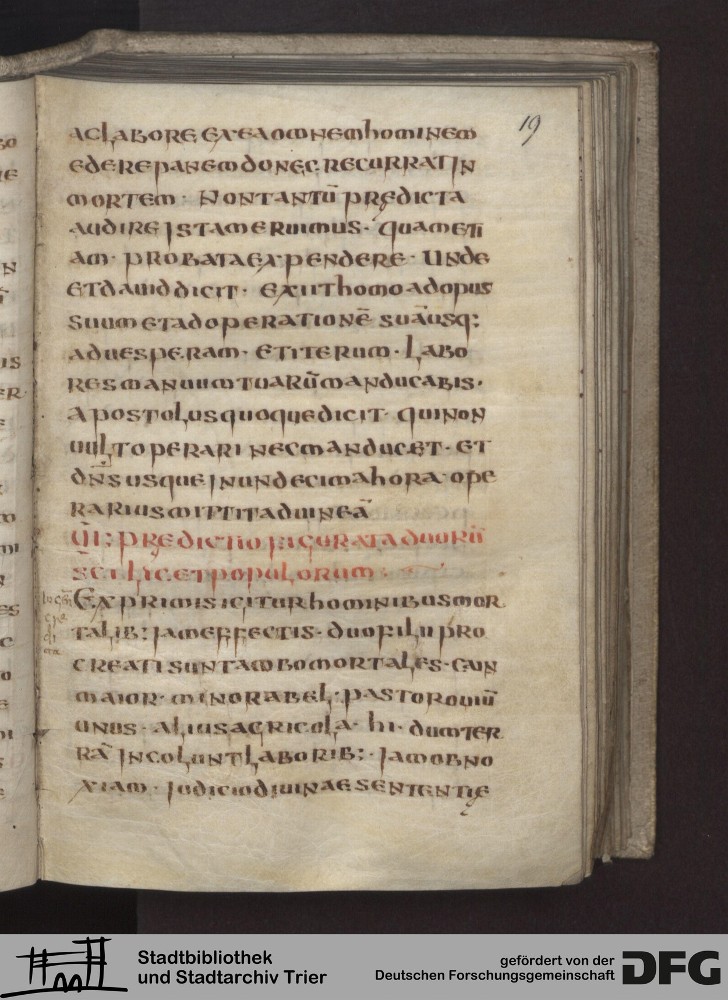 19
ac labore ex ea omnem hominem
edere panem donec recurrat in
mortem · Non tantū prędicta
audire ista meruimus · quam eti
am · probata expendere · Unde
et dauid dicit · exiit homo ad opus
suum et ad operationē suā usq:
ad uesperam · et iterum · Labo
res manuum tuarūm anducabis ·
apostolus quoque dicit · qui non
uult operari nec manducet · et
dn̄s usque in undecima hora ope
rarius mittit ad uineā
Pręedictio figurata duorū
scilycet populorum ·
Ex primis igitur hominibus mor
talib: iam effectis · duo filii pro
creati sunt ambo mortales · cain
maior · minor abel · pastor ouiū
unus · alius agricola · hi · dum ter
rā incolunt laborib: · iam obno
xiam · iudicio diuinae sententię
Stadtbibliothek
und Stadtarchiv Trier
gefördert von der
Deutschen Forschungsgemeinschaft
DFG